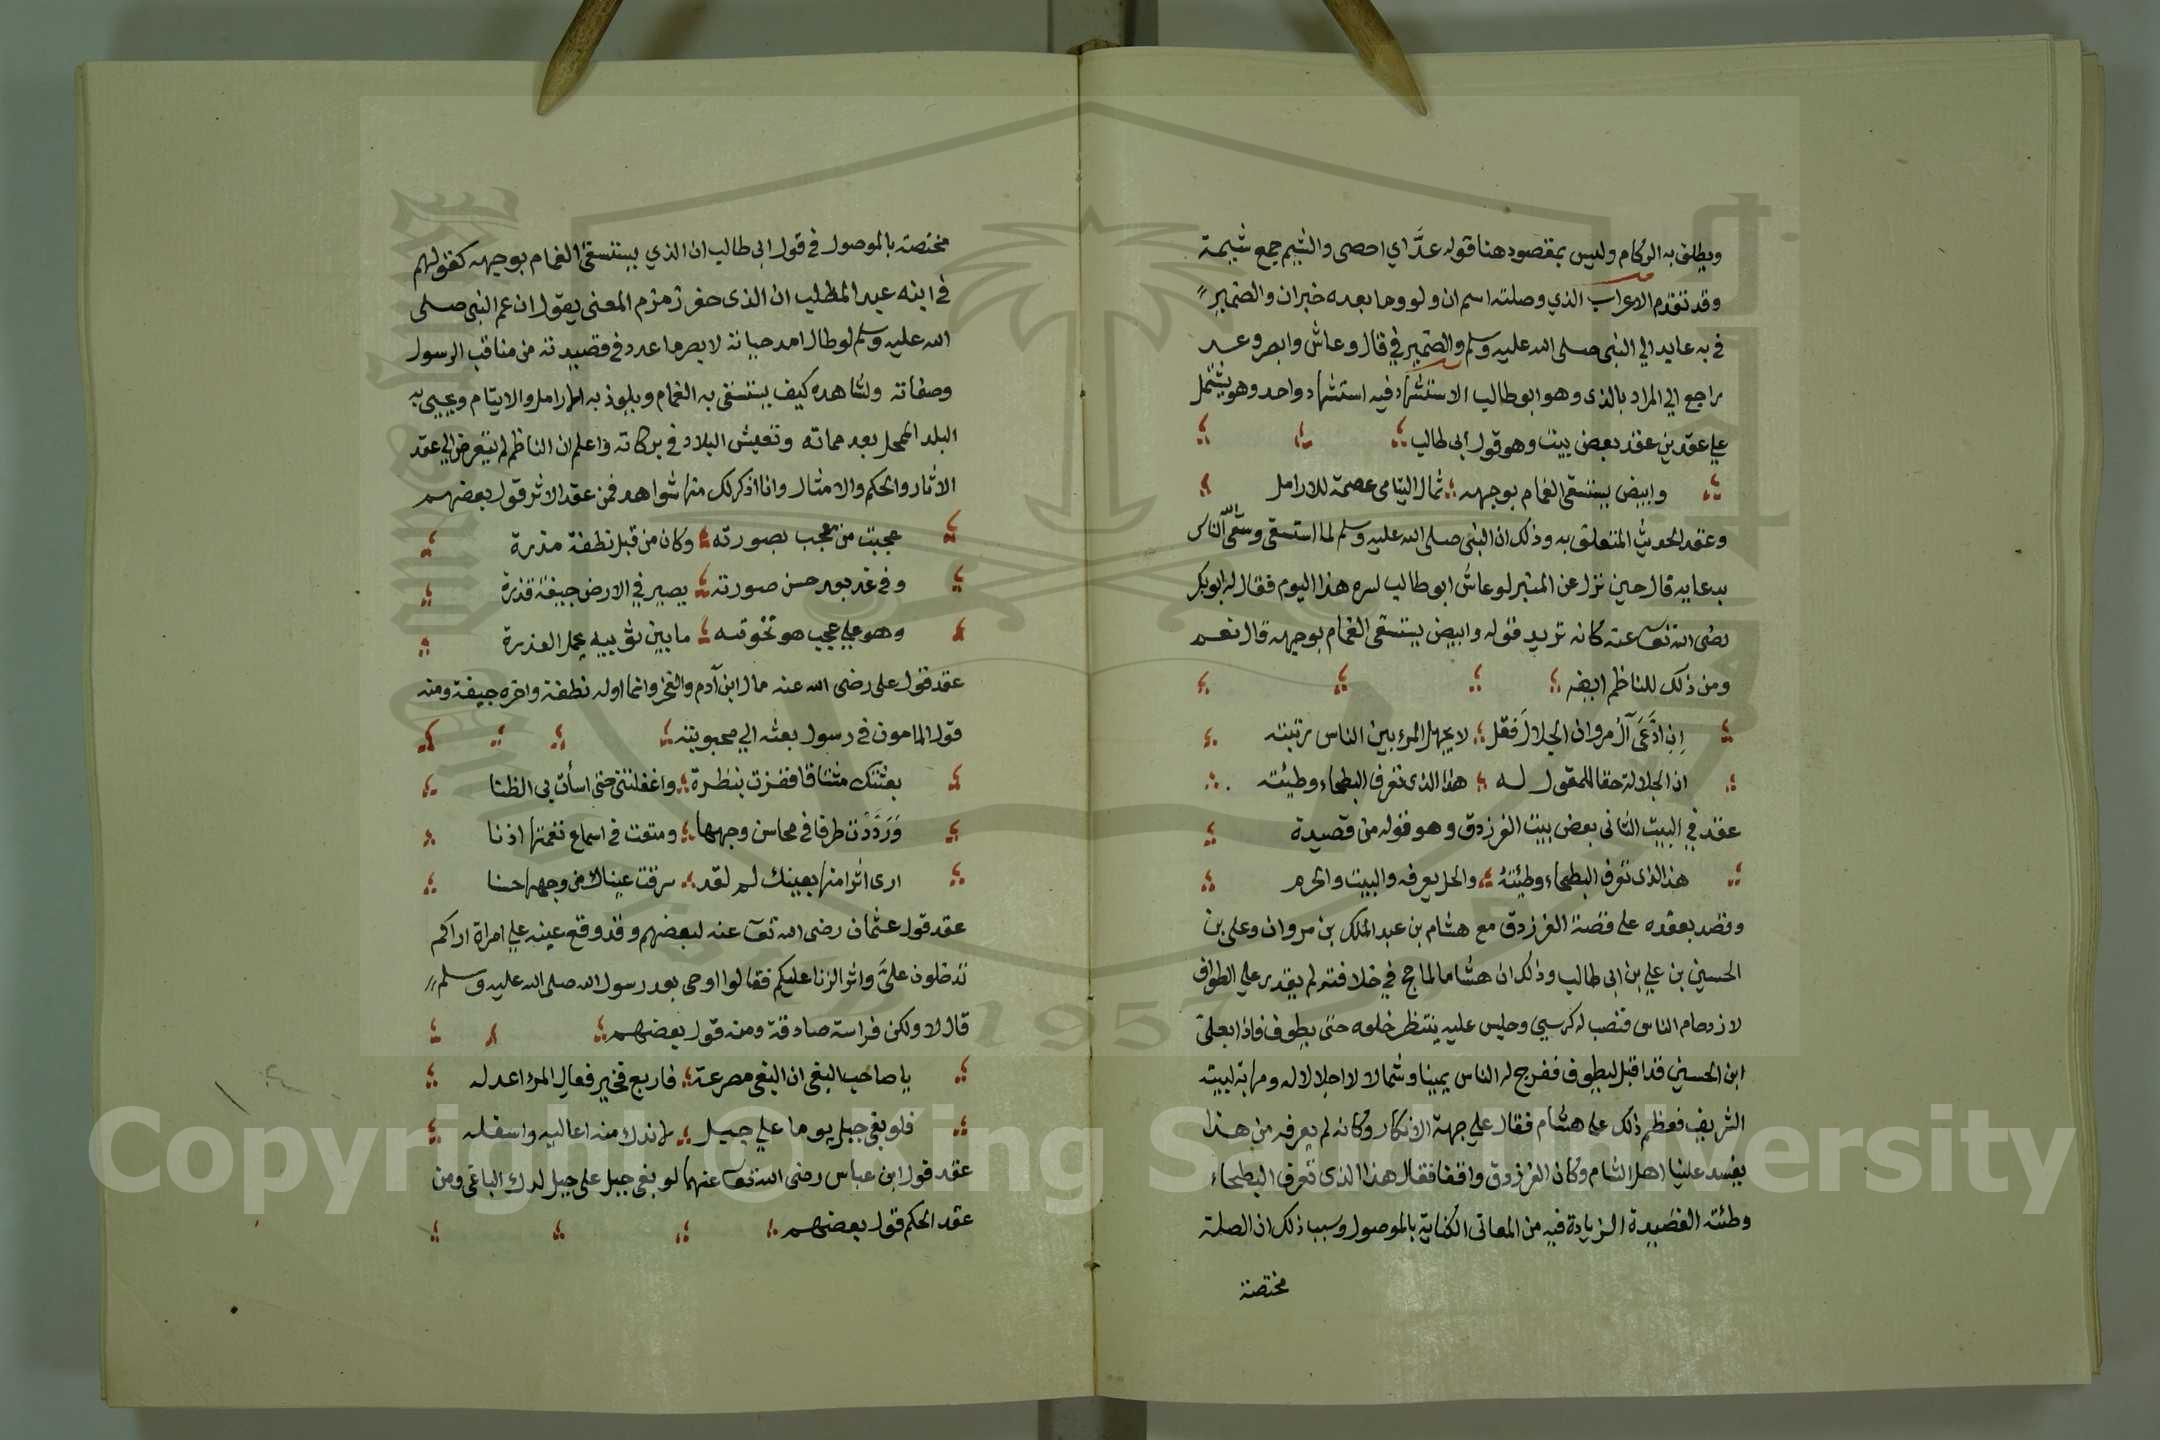 ويطلق به الركام وليس بمقصود هنا قوله عدَّ اي احصى والشيم جمع شيمة
وقد تقدم الاعراب الذي وصلته اسم ان ولو وما بعده خبران والضمير
في به عايد الي النبي صلى الله عليه وسلم والضمير في قال وعاش وابصر وعد
راجع الي المراد بالذى وهو ابو طالب الاستشهاد فيه استشهاد واحد وهو يشتمل
علي عقد بن عقد بعض بيت وهو قول أبى طالب
وابيض يستسقى الغمام بوجهه ثمال اليتامى عصمة للارامل
وعقد الحديث المتعلق به وذلك ان النبى صلى الله عليه وسلم لما استسقى وسقى الله الناس
بدعايه قال حين نزل عن المنبر لو عاش ابو طالب لسره هذا اليوم فقال له ابو بكر
رضى الله تعالى عنه كانه تريد قوله وابيض يستسقى الغمام بوجهه قال نعم
ومن ذلك للناظم ايضه
اِنِ ادَّعَى آل مروان الجلالَ فقل لا يجهل المرء بين الناس رتبته
ان الجلالة حقا للمقول له هذا الذى تعرف البطحاء وطيئته
عقد في البيت الثانى بعض بيت الفرزدق وهو قوله من قصيدة
هذا الذى تعرف البطحاء وطيئتهُ والحل يعرفه والبيت والحرم
وقصد بعقده على قصة الفرزدق مع هشام بن عبد الملك بن مروان وعلى بن
الحسين بن علي بن ابى طالب وذلك ان هشاما لما حج في خلافته لم يقدر علي الطواف
لازدحام الناس فنصب له كرسي وجلس عليه ينتظر خلوه حتى يطوف فاذا بعلى
ابن الحسين قد اقبل ليطوف ففرج له الناس يمينا وشمالا لا اجلالا له ومهابة لبيته
الشريف فعظم ذلك على هشام فقال علي جهة الانكار وكانه لم يعرفه من هذا
يفسد علينا اهل الشام وكان الفرزدق واقفا فقال هذا الذى تعرف البطحاء
وطئته القصيدة الزيادة فيه من المعاتى الكناية بالموصول وسبب ذلك ان الصلة
مختصة
مختصة بالموصول في قول ابى طالب ان الذي يستسقى الغمام بوجهه كقولهم
في ابنه عبد المطلب ان الذى حفر زمزم المعنى يقول ان عم النبى صلى
الله عليه وسلم لو طال امد حياته لابصر ما عدد في قصيدته من مناقب الرسول
وصفاته ولشاهده كيف يستسقى به الغمام ويلوذ به الارامل والايتام ويحيى به
البلد الممحل بعد مماته وتعيش البلاد في بركاته واعلم ان الناظم لم يتعرض الي عقد
الاثار والحكم والامثال وانا اذكر لك منها شواهد فمن عقد الاثر قول بعضهم
عجبت من معجب بصورته وكان من قبل نطفة مذرة
وفي غد بعد حسن صورته يصير في الارض جيفة قذرة
وهو علي عجبه ونخوته ما بين ثوبيه يحمل العذرة
عقد قول على رضى الله عنه مال ابن آدم والفخر وانما اوله نطفة واخره جيفة ومنه
قول المامون في رسول بعثه الي محبوبته
بعثتك مشتاقا ففزت بنظرة واغفلتنى حتى اسأت بى الظنا
وَرَدَّدْت طرفا في محاسن وجهها ومتعت في اسماع نغمتها اذنا
ارى اثرا منها بعينك لم لقد سرقت عيناك من وجهها حسنا
عقد قول عثمان رضى الله تعالى عنه لبعضهم وقد وقع عينه علي امراة اراكم
تدخلون علىَّ واثر الزنا عليكم فقالوا اوحى بعد رسول الله صلى الله عليه وسلم
قال لا ولكن فراسة صادقة ومنه قول بعضهم
يا صاحب البغى ان البغى مصرعة فاربع فخير فعال المرء اعدله
فلو بغى جبل يوما علي جبل لاندك منه اعاليه واسفله
عقد قول ابن عباس رضى الله تعالى عنهما لو بغى جبل على جبل لدك الباغى ومن
عقد الحكم قول بعضهم
1957
Copyright © King Saud University